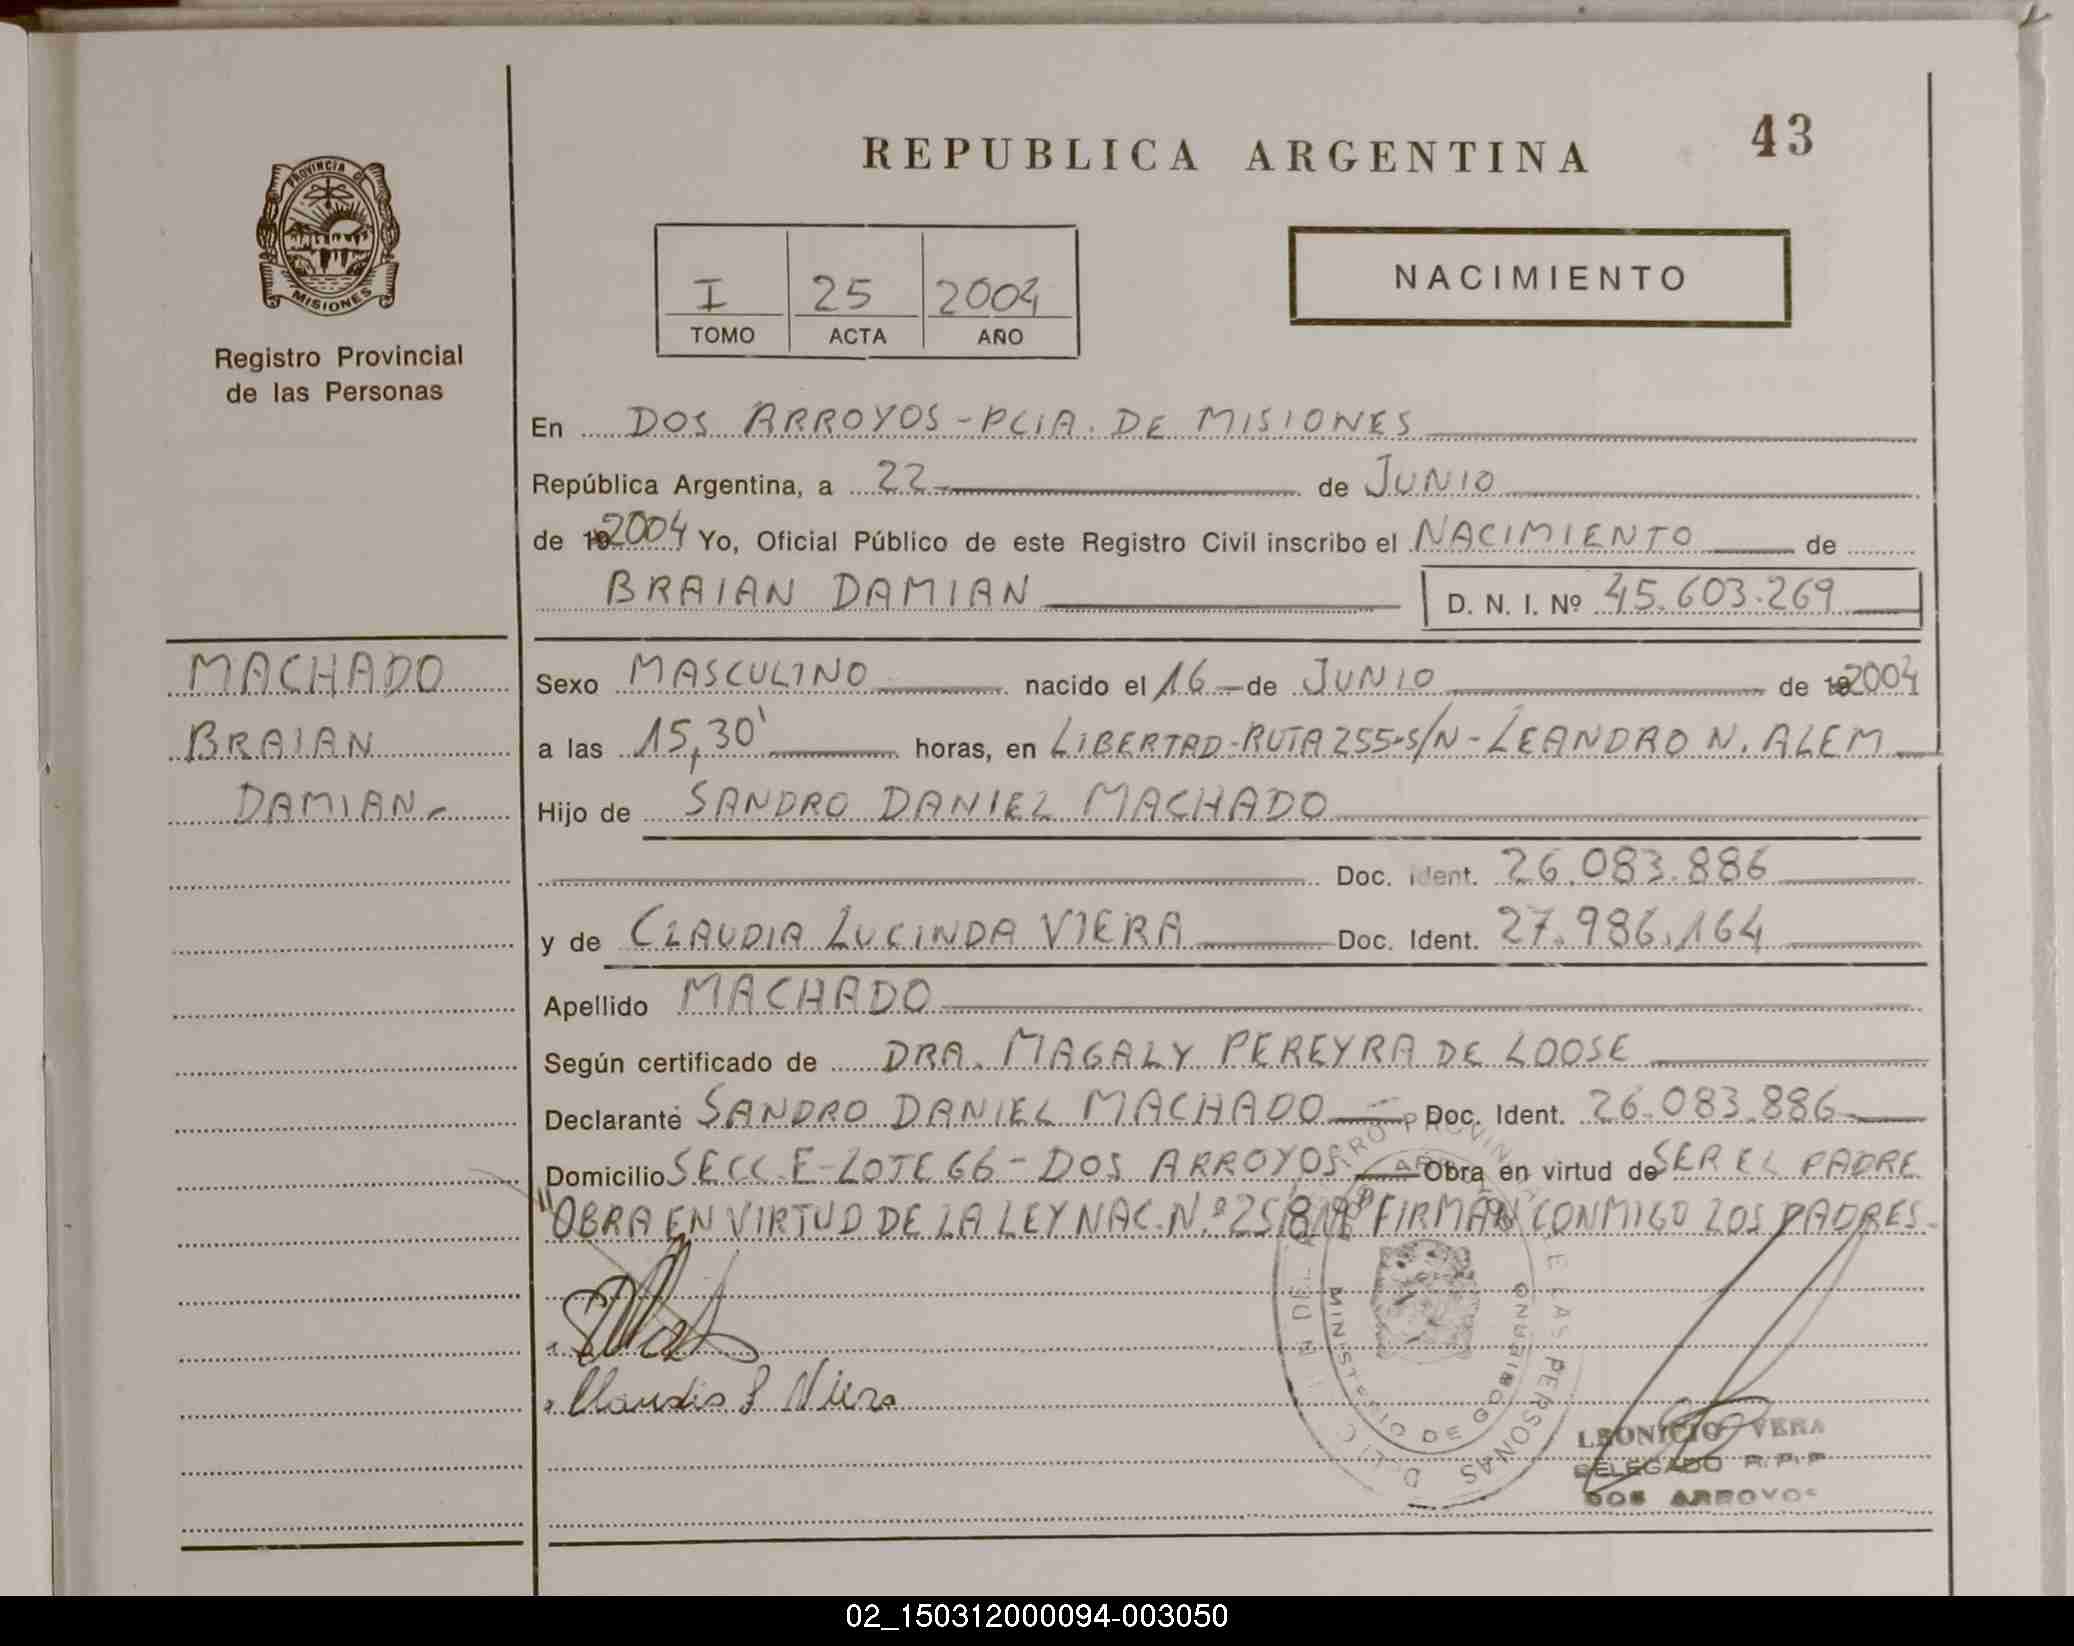 REPUBLICA ARGENTINA
43
PROVINCIA DE
MISIONES
Registro Provincial
de las Personas
I 25 2004
TOMO ACTA AÑO
NACIMIENTO
En DOS ARROYOS - PCIA. DE MISIONES
República Argentina, a 22 de JUNIO
de 19 2004 Yo, Oficial Público de este Registro Civil inscribo el NACIMIENTO de
BRAIAN DAMIAN D. N. I. Nº 45.603.269
MACHADO
BRAIAN
DAMIAN.
Sexo MASCULINO nacido el 16 de JUNIO de 19 2004
a las 15,30' horas, en LIBERTAD-RUTA 255-S/N - LEANDRO N. ALEM
Hijo de SANDRO DANIEL MACHADO
Doc. Ident. 26.083.886
y de CLAUDIA LUCINDA VIERA Doc. Ident. 27.986.164
Apellido MACHADO
Según certificado de DRA. MAGALY PEREYRA DE LOOSE
Declarante SANDRO DANIEL MACHADO Doc. Ident. 26.083.886
Domicilio SECC. E-LOTE 66 - DOS ARROYOS Obra en virtud de SER EL PADRE
"OBRA EN VIRTUD DE LA LEY NAC. N.º FIRMAN CONMIGO LOS PADRES.
Claudia L Viera
MINISTERIO DE GOBIERNO
DE LAS PERSONAS
LEONICIO VERA
DELEGADO R.P.P
DOS ARROYOS
02_150312000094-003050